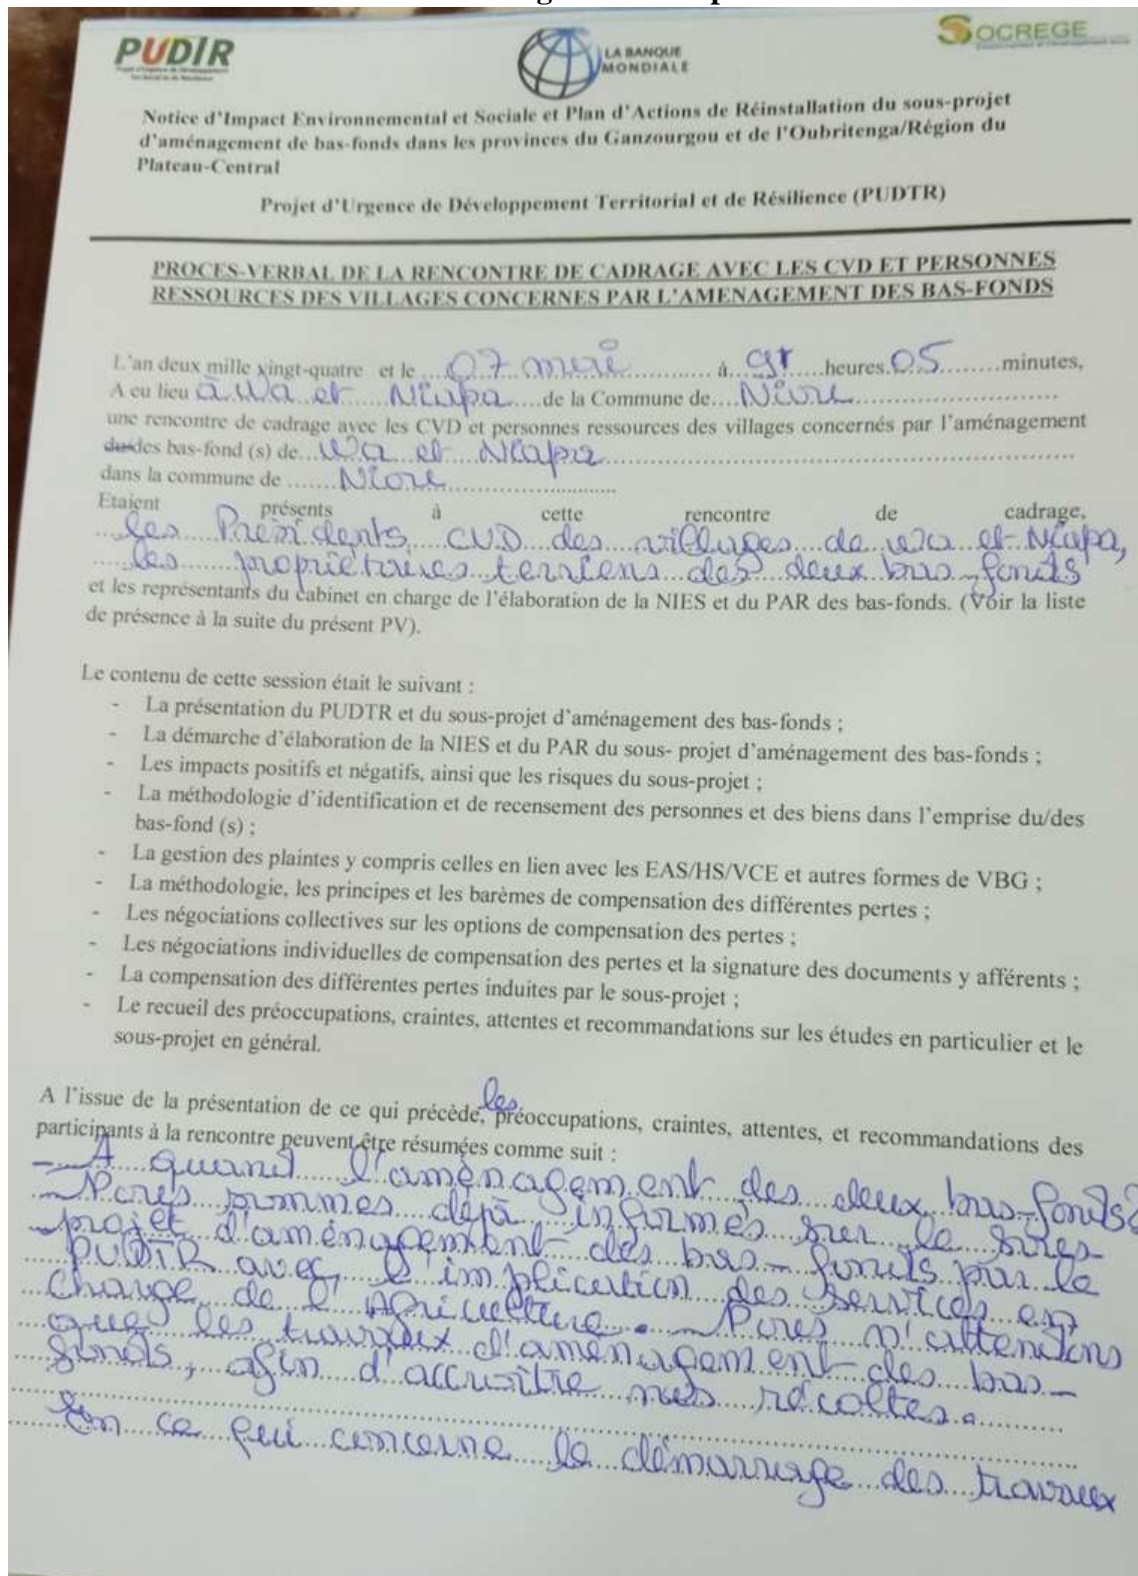 PUDTR
LA BANQUE
MONDIALE
SOCREGE
Notice d'Impact Environnemental et Sociale et Plan d'Actions de Réinstallation du sous-projet
d'aménagement de bas-fonds dans les provinces du Ganzourgou et de l'Oubritenga/Région du
Plateau-Central
Projet d'Urgence de Développement Territorial et de Résilience (PUDTR)
PROCES-VERBAL DE LA RENCONTRE DE CADRAGE AVEC LES CVD ET PERSONNES
RESSOURCES DES VILLAGES CONCERNES PAR L'AMENAGEMENT DES BAS-FONDS
L'an deux mille vingt-quatre et le 07 mai à heures 05 minutes,
A eu lieu à Wa et de la Commune de
une rencontre de cadrage avec les CVD et personnes ressources des villages concernés par l'aménagement
du/des bas-fond (s) de Wa et
dans la commune de
Etaient présents à cette rencontre de cadrage,
les Présidents CVD des villages de Wa et
les propriétaires terriens des deux bas-fonds
et les représentants du cabinet en charge de l'élaboration de la NIES et du PAR des bas-fonds. (Voir la liste
de présence à la suite du présent PV).
Le contenu de cette session était le suivant :
- La présentation du PUDTR et du sous-projet d'aménagement des bas-fonds ;
- La démarche d'élaboration de la NIES et du PAR du sous- projet d'aménagement des bas-fonds ;
- Les impacts positifs et négatifs, ainsi que les risques du sous-projet ;
- La méthodologie d'identification et de recensement des personnes et des biens dans l'emprise du/des
bas-fond (s) ;
- La gestion des plaintes y compris celles en lien avec les EAS/HS/VCE et autres formes de VBG ;
- La méthodologie, les principes et les barèmes de compensation des différentes pertes ;
- Les négociations collectives sur les options de compensation des pertes ;
- Les négociations individuelles de compensation des pertes et la signature des documents y afférents ;
- La compensation des différentes pertes induites par le sous-projet ;
- Le recueil des préoccupations, craintes, attentes et recommandations sur les études en particulier et le
sous-projet en général.
A l'issue de la présentation de ce qui précède, les préoccupations, craintes, attentes, et recommandations des
participants à la rencontre peuvent être résumées comme suit :
- A quand l'aménagement des deux bas-fonds?
- Nous sommes déjà informés sur le sous-
projet d'aménagement des bas-fonds par le
PUDTR avec l'implication des services en
charge de l'Agriculture. - Nous n'attendons
que les travaux d'aménagement des bas-
fonds, afin d'accroître nos récoltes.
En ce qui concerne le démarrage des travaux